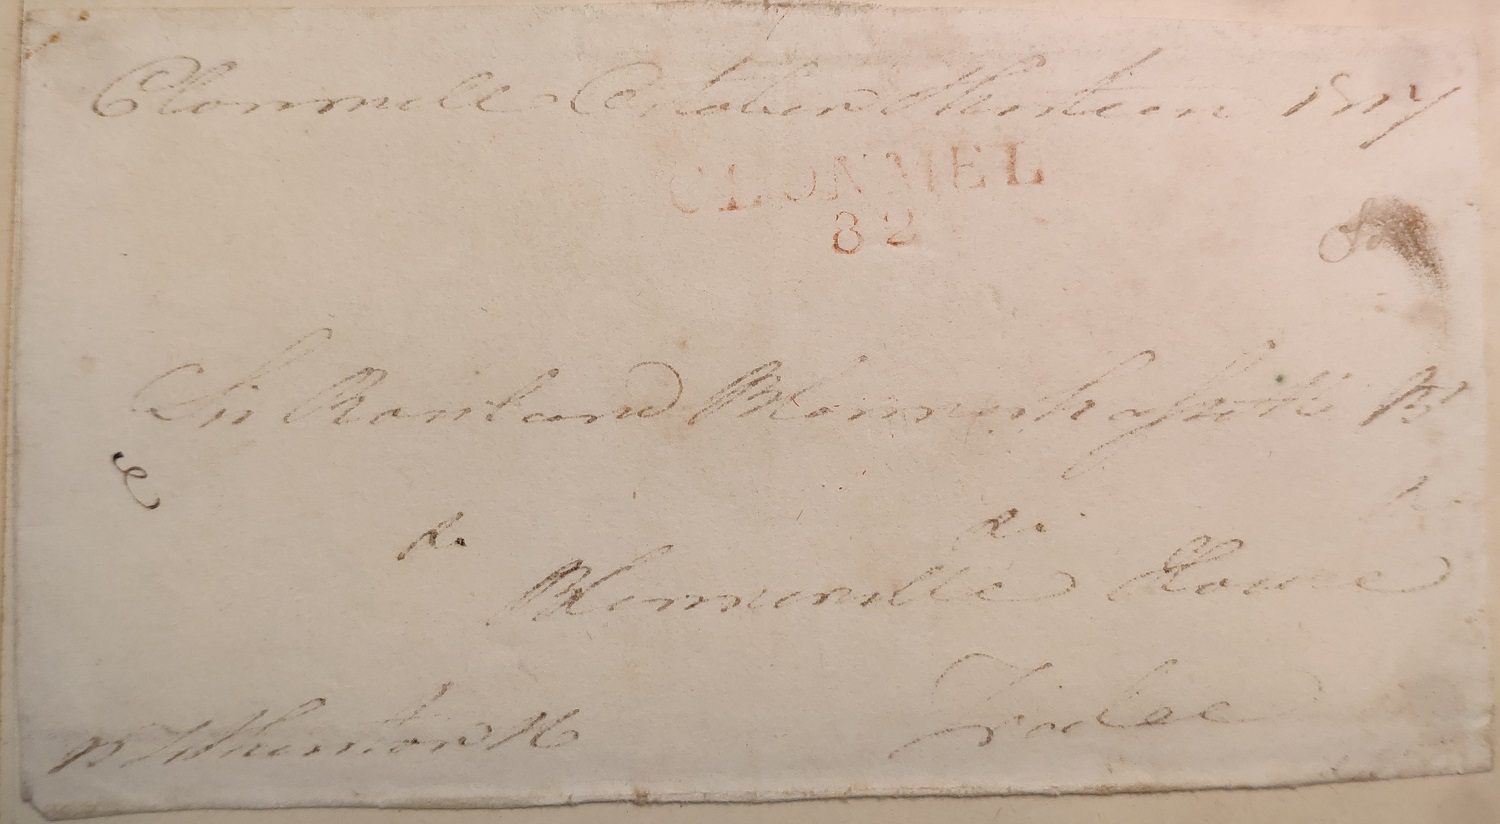 Clonmell October Thirteen 1817
CLONMEL
82
Sir Rowland Blennerhassett Bt
Blennerville House
Tralee